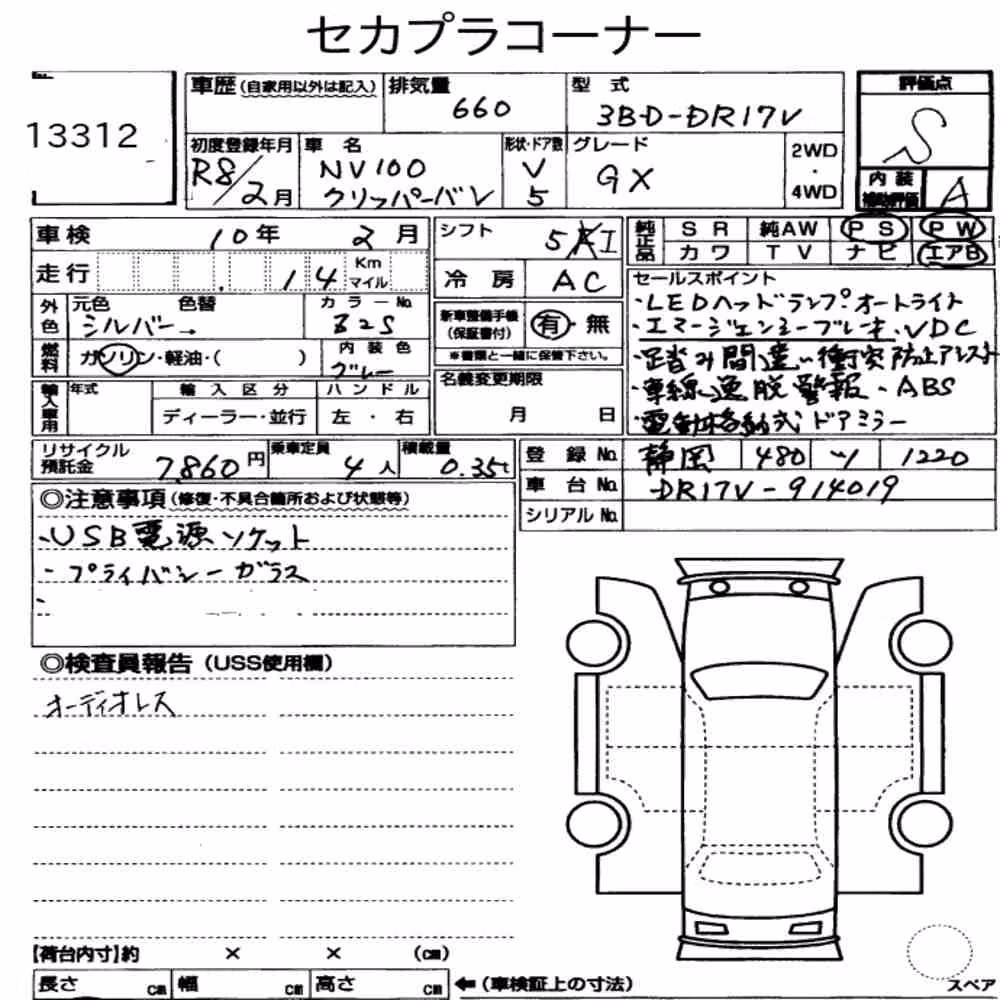 セカプラコーナー
13312
車歴(自家用以外は記入) 排気量 660 型式 3BD-DR17V
評価点 S
初度登録年月 R8/2月 車名 NV100 クリッパーバン 形状・ドア数 V 5 グレード GX 2WD・4WD
内装補助評価 A
車検 10年 2月 シフト 5AI
純正品 SR 純AW PS PW
カワ TV ナビ エアB
走行 14 Km マイル 冷房 AC
外色 元色 色替 シルバー→ カラーNo. Z2S
新車整備手帳(保証書付) 有・無
※書類と一緒に保管下さい。
燃料 ガソリン・軽油・( ) 内装色 グレー
セールスポイント
・LEDヘッドランプ・オートライト
・エマージェンシーブレーキ・VDC
・踏み間違い衝突防止アシスト
・車線逸脱警報・ABS
・電動格納式ドアミラー
輸入車用 年式 輸入区分 ハンドル
ディーラー・並行 左・右
名義変更期限
月 日
リサイクル預託金 7,860円 乗車定員 4人 積載量 0.35t
登録No. 静岡 480 い 1220
車台No. DR17V-914019
シリアルNo.
◎注意事項(修復・不具合箇所および状態等)
・USB電源ソケット
・プライバシーガラス
◎検査員報告(USS使用欄)
オーディオレス
【荷台内寸】約 × × (cm)
長さ cm 幅 cm 高さ cm ←(車検証上の寸法)
スペア